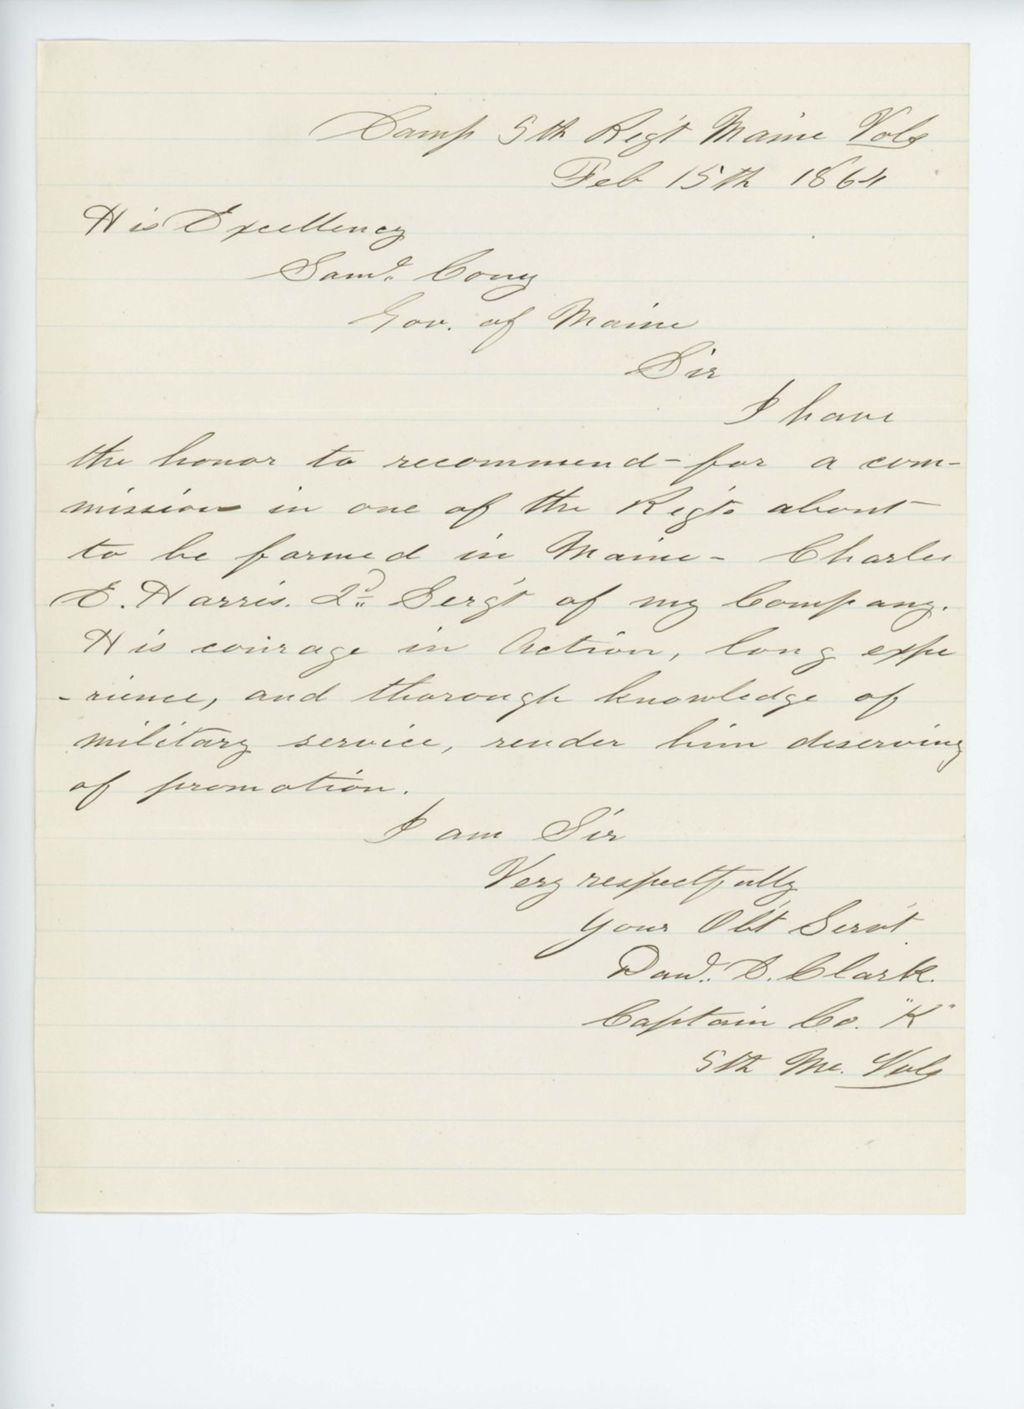 Camp 5th Reg't Maine Vols
Feb 15th 1864
His Excellency
Saml. Cony
Gov. of Maine
Sir
I have
the honor to recommend for a com-
mission in one of the Reg'ts about
to be formed in Maine - Charles
E. Harris. 2d Serg't of my Company.
His courage in Action, long expe
-rience, and thorough knowledge of
military service, render him deserving
of promotion.
I am Sir
Very respectfully
Your Ob't Serv't
Danl. S. Clark.
Captain Co. "K"
5th Me. Vols